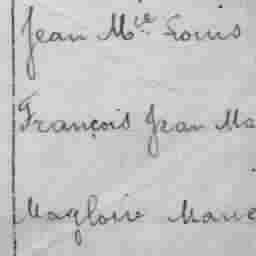 Jean Mce Louis
François Jean Ma
Magloire Marie